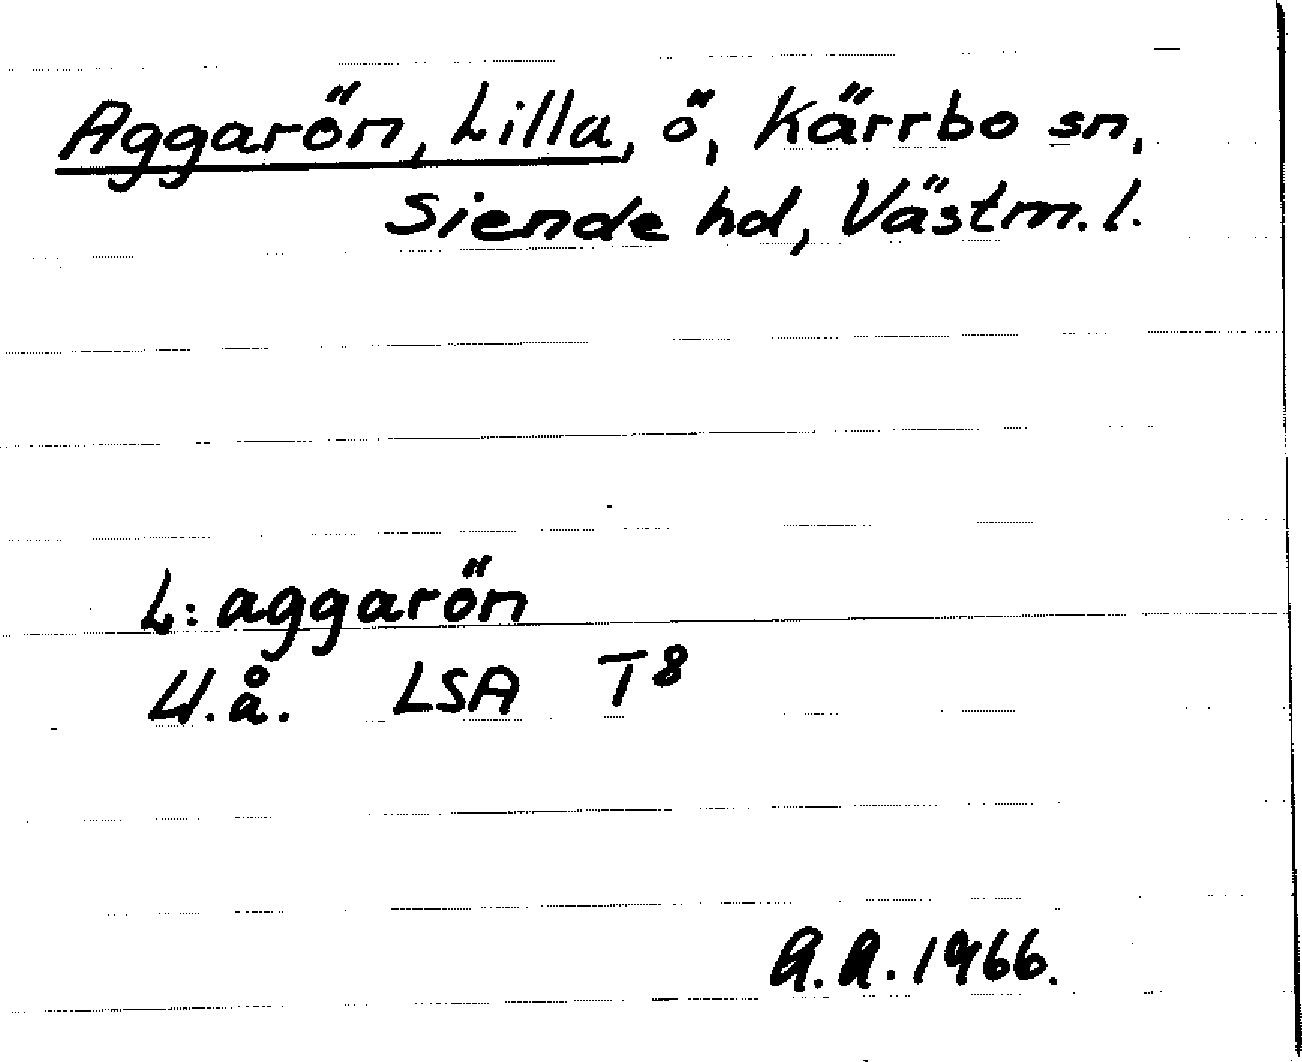 Aggarön, Lilla, ö, Kärrbo sn,
Siende hd, Västm. l.
L: aggarön
U.å. LSA T8
A.A. 1966.